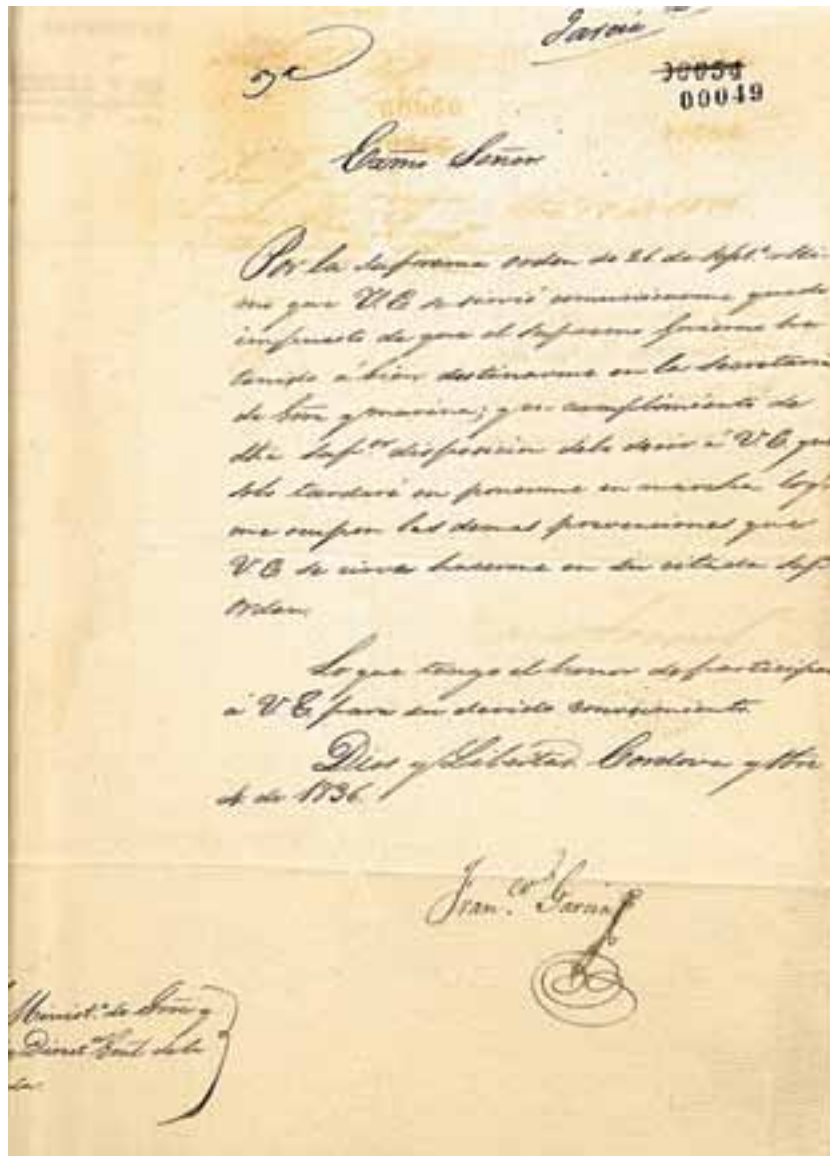 García
00054
00049
Exmo Señor
Por la Suprema orden de 26 de Sept.e ulti-
mo que V.E. se sirvió comunicarme quedo
impuesto de que el Supremo Gobierno ha
tenido á bien destinarme en la Secretaria
de Grra y marina; y en cumplimiento de
dha Sup.or disposicion debo decir á V.E. que
solo tardaré en ponerme en marcha
me ocupen las demas prevenciones que
V.E. se sirve hacerme en su citada Sup.
orden.
Lo que tengo el honor de participar
á V.E. para su devido conocimiento.
Dios y Libertad. Cordova
4 de 1836.
Fran.co García
Minist.o de Grra y
Direct.or Gral de la